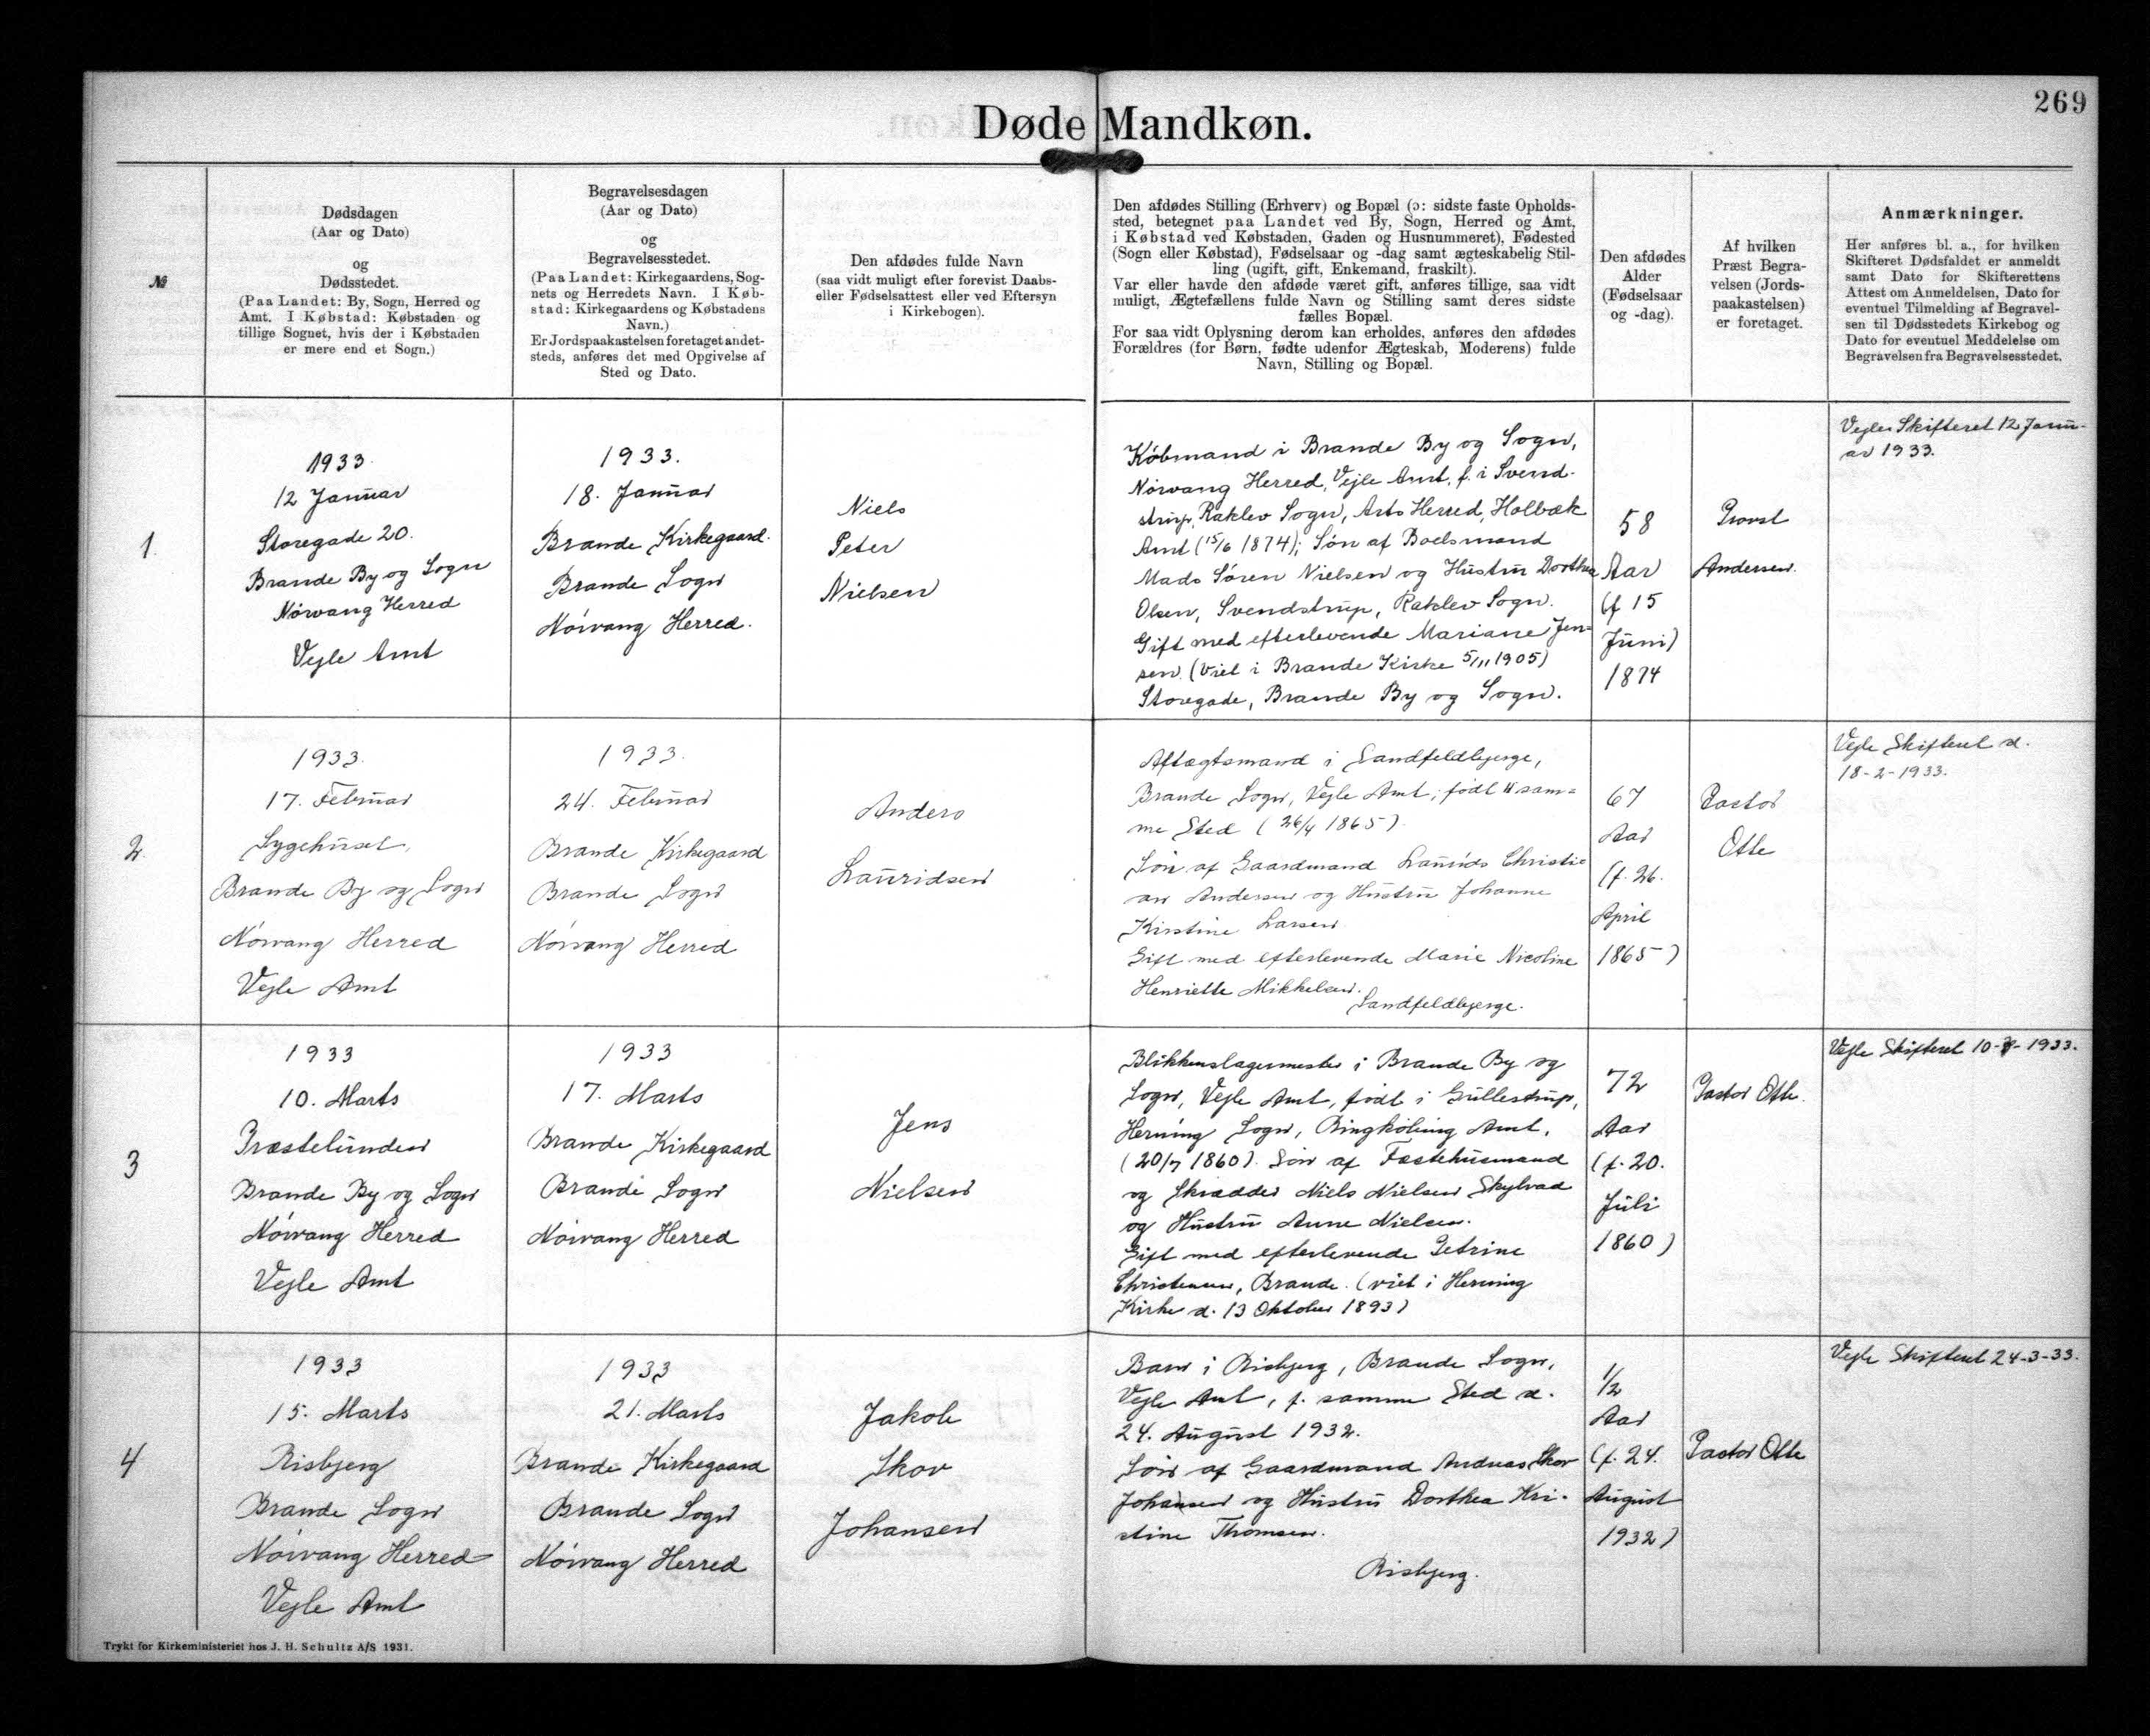 269
Døde Mandkøn.
№
Dødsdagen
(Aar og Dato)
og
Dødsstedet.
(Paa Landet: By, Sogn, Herred og
Amt. I Købstad: Købstaden og
tillige Sognet, hvis der i Købstaden
er mere end et Sogn.)
Begravelsesdagen
(Aar og Dato)
og
Begravelsesstedet.
(Paa Landet: Kirkegaardens, Sog-
nets og Herredets Navn. I Køb-
stad: Kirkegaardens og Købstadens
Navn.)
Er Jordspaakastelsen foretaget andet-
steds, anføres det med Opgivelse af
Sted og Dato.
Den afdødes fulde Navn
(saa vidt muligt efter forevist Daabs-
eller Fødselsattest eller ved Eftersyn
i Kirkebogen).
Den afdødes Stilling (Erhverv) og Bopæl (ɔ: sidste faste Opholds-
sted, betegnet paa Landet ved By, Sogn, Herred og Amt,
i Købstad ved Købstaden, Gaden og Husnummeret), Fødested
(Sogn eller Købstad), Fødselsaar og -dag samt ægteskabelig Stil-
ling (ugift, gift, Enkemand, fraskilt).
Var eller havde den afdøde været gift, anføres tillige, saa vidt
muligt, Ægtefællens fulde Navn og Stilling samt deres sidste
fælles Bopæl.
For saa vidt Oplysning derom kan erholdes, anføres den afdødes
Forældres (for Børn, fødte udenfor Ægteskab, Moderens) fulde
Navn, Stilling og Bopæl.
Den afdødes
Alder
(Fødselsaar
og -dag).
Af hvilken
Præst Begra-
velsen (Jords-
paakastelsen)
er foretaget.
Anmærkninger.
Her anføres bl. a., for hvilken
Skifteret Dødsfaldet er anmeldt
samt Dato for Skifterettens
Attest om Anmeldelsen, Dato for
eventuel Tilmelding af Begravel-
sen til Dødsstedets Kirkebog og
Dato for eventuel Meddelelse om
Begravelsen fra Begravelsesstedet.
1.
1933.
12 Januar
Storegade 20.
Brande By og Sogn
Nørvang Herred
Vejle Amt
1933.
18. Januar
Brande Kirkegaard.
Brande Sogn
Nørvang Herred.
Niels
Peter
Nielsen
Købmand i Brande By og Sogn,
Nørvang Herred, Vejle Amt, f. i Svend-
strup, Raklev Sogn, Arts Herred, Holbæk
Amt (15/6 1874); Søn af Boelsmand
Mads Søren Nielsen og Hustru Dorthea
Olsen, Svendstrup, Raklev Sogn.
Gift med efterlevende Mariane Jen-
sen. (Viet i Brande Kirke 5/11 1905)
Storegade, Brande By og Sogn.
58
Aar
(f 15
Juni)
1874
Provst
Andersen.
Vejle Skifteret 12 Janu-
ar 1933.
2.
1933.
17. Februar
Sygehuset,
Brande By og Sogn
Nørvang Herred
Vejle Amt
1933.
24. Februar
Brande Kirkegaard
Brande Sogn
Nørvang Herred
Anders
Lauridsen
Aftægtsmand i Sandfeldbjerge,
Brande Sogn, Vejle Amt; født sam=
me Sted (26/4 1865).
Søn af Gaardmand Laurids Christi=
an Andersen og Hustru Johanne
Kirstine Larsen.
Gift med efterlevende Marie Nicoline
Henriette Mikkelsen.
Sandfeldbjerge.
67
Aar
(f. 26.
April
1865)
Pastor
Otte
Vejle Skifteret d.
18-2-1933.
3
1933
10. Marts
Præstelunden
Brande By og Sogn
Nørvang Herred
Vejle Amt
1933
17. Marts
Brande Kirkegaard
Brande Sogn
Nørvang Herred
Jens
Nielsen
Blikkenslagermester i Brande By og
Sogn, Vejle Amt, født i Gullestrup,
Herning Sogn, Ringkøbing Amt.
(20/7 1860). Søn af Fæstehusmand
og Skrædder Niels Nielsen Skylvad
og Hustru Anne Nielsen.
Gift med efterlevende Petrine
Christensen, Brande. (viet i Herning
Kirke d. 13 Oktober 1893)
72
Aar
(f. 20.
Juli
1860)
Pastor Otte.
Vejle Skifteret 10-3-1933.
4
1933
15. Marts
Risbjerg
Brande Sogn
Nørvang Herred
Vejle Amt
1933
21. Marts
Brande Kirkegaard
Brande Sogn
Nørvang Herred
Jakob
Skov
Johansen
Barn i Risbjerg, Brande Sogn,
Vejle Amt, f. samme Sted d.
24. August 1932.
Søn af Gaardmand Andreas Skov
Johansen og Hustru Dorthea Kri-
stine Thomsen.
Risbjerg.
1/2
Aar
(f. 24.
August
1932)
Pastor Otte
Vejle Skifteret 24-3-33.
Trykt for Kirkeministeriet hos J. H. Schultz A/S 1931.